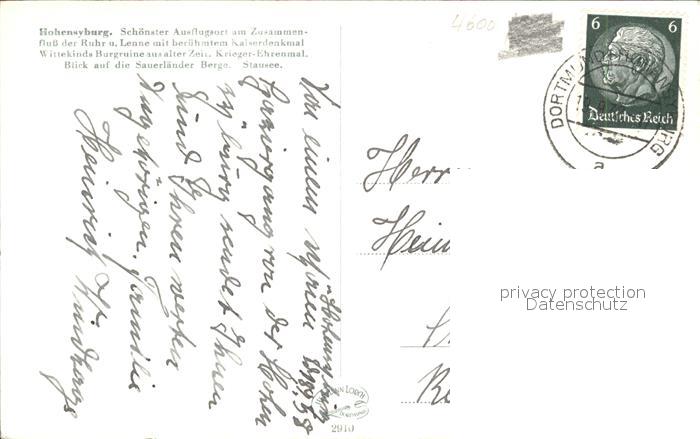 Hohensyburg. Schönster Ausflugsort am Zusammen-
fluß der Ruhr u. Lenne mit berühmtem Kaiserdenkmal
Wittekinds Burgruine aus alter Zeit. Krieger-Ehrenmal.
Blick auf die Sauerländer Berge. Stausee.
4600
6 6
Deutsches Reich
DORTMUND
a
Von einem schönen
Spaziergang von der Hohen
syburg sendet Ihnen
und Ihren werten
Angehörigen. Familie
Heinrich
Herr
Hein
privacy protection
Datenschutz
2910